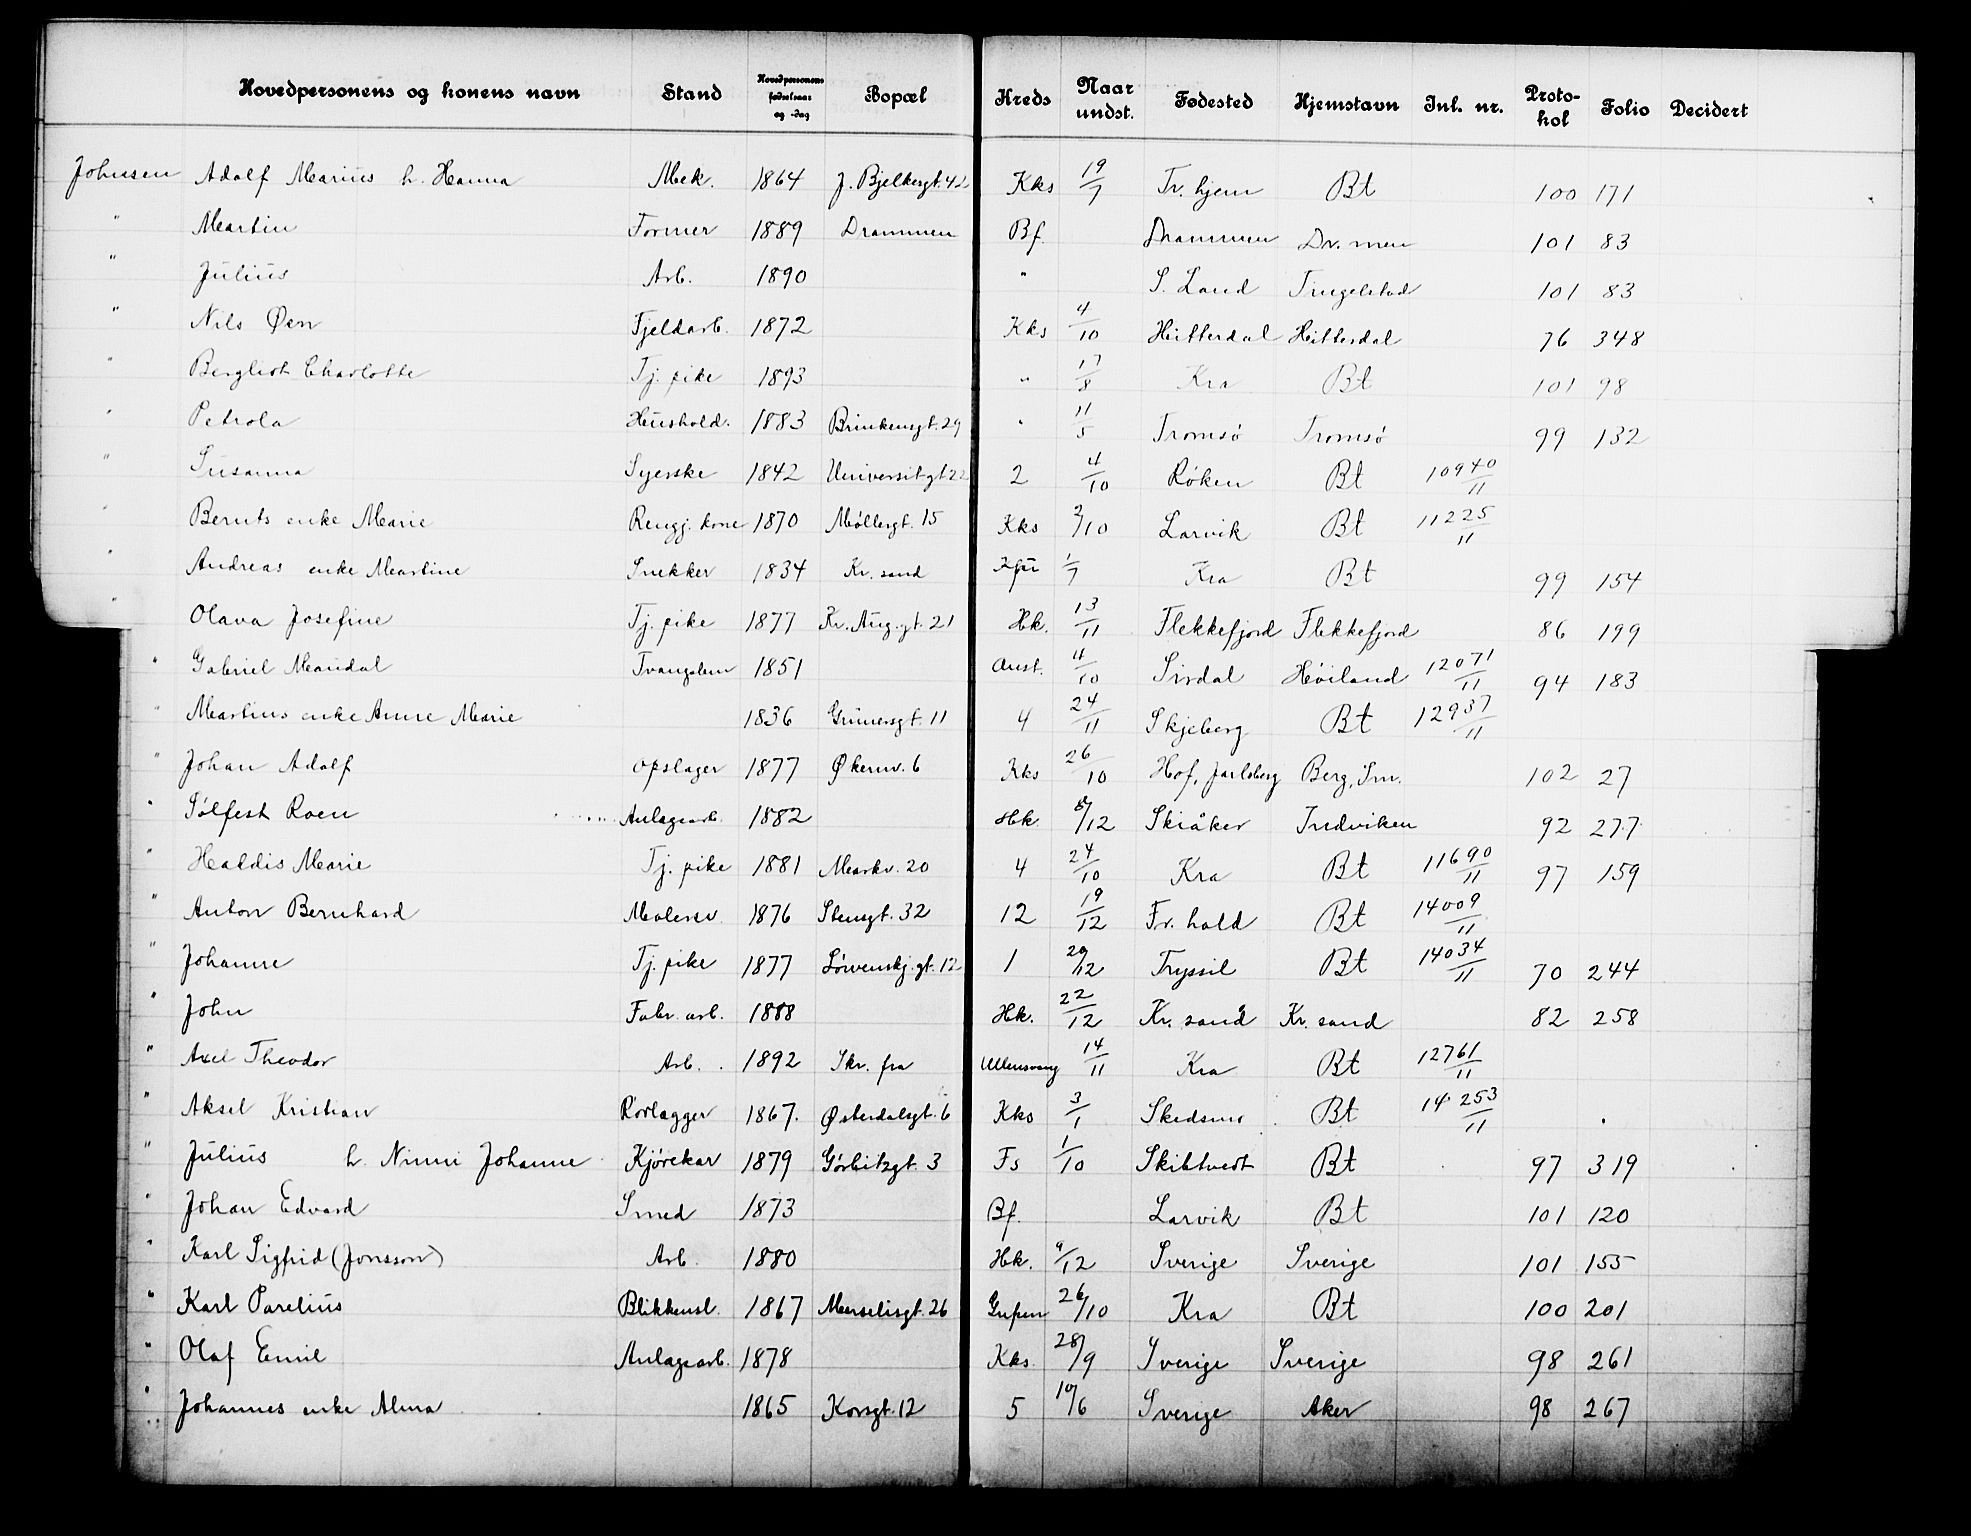 Hovedpersonens og konens navn Stand Hovedpersonens fødselsaar og -dag Bopæl Kreds Naar undst. Fødested Hjemstavn Inl. nr. Protokol Folio Decidert
Johnsen Adolf Marius h. Hanna Mek. 1864 J. Bjelkesgt. 42 Kks 19/7 Tr. hjem Bt 100 171
" Martin Former 1889 Drammen Bf. Drammen Dr. men 101 83
" Julius Arb. 1890 " S. Land Tingelstad 101 83
" Nils Øen Fjeldarb. 1872 Kks 4/10 Hitterdal Hitterdal 76 348
" Bergliot Charlotte Tj. pike 1893 " 17/8 Kra Bt 101 98
" Petrola Hushold. 1883 Brinkensgt. 29 " 11/5 Tromsø Tromsø 99 132
" Susanna Syerske 1842 Universitgt 22 2 4/10 Røken Bt 10940/11
" Bernts enke Marie Rengj. kone 1870 Møllergt. 15 Kks 2/10 Larvik Bt 11225/11
" Andreas enke Martine Snekker 1834 Kr. sand 1/7 Kra Bt 99 154
" Olava Josefine Tj. pike 1877 Kr. Aug. gt. 21 Hk. 13/11 Flekkefjord Flekkefjord 86 199
" Gabriel Maudal Tvangslem 1851 Aust. 4/10 Sirdal Høiland 12071/11 94 183
" Martins enke Anne Marie 1836 Grünersgt. 11 4 24/11 Skjeberg Bt 12937/11
" Johan Adolf Opslager 1877 Økernv. 6 Kks 26/10 Hof, Jarlsberg Berg, Sm. 102 27
" Sølfest Roen Anlagsarb. 1882 Hk. 8/12 Skiåker Indviken 92 277
" Haldis Marie Tj. pike 1881 Markv. 20 4 24/10 Kra Bt 11690/11 97 159
" Anton Bernhard Malersv. 1876 Stensgt. 32 12 19/12 Fr. hald Bt 14009/11
" Johanne Tj. pike 1877 Løvenskj. gt. 12 1 20/12 Tryssil Bt 14034/11 70 244
" John Fabr. arb. 1888 Hk. 22/12 Kr. sand Kr. sand 82 258
" Axel Theodor Arb. 1892 Skr. fra Ullensvang 14/11 Kra Bt 12761/11
" Aksel Kristian Rørlægger 1867. Østerdalsgt. 6 Kks 3/1 Skedsmo Bt 14253/11
" Julius h. Ninni Johanne Kjørekar 1879 Gørbitzgt. 3 Fs 1/10 Skibtvedt Bt 97 319
" Johan Edvard Smed 1873 Bf. Larvik Bt 101 120
" Karl Sigfrid (Jonsson) Arb. 1880 Hk. 9/12 Sverige Sverige 101 155
" Karl Parelius Blikkensl. 1867 Marselisgt. 26 Gupen 26/10 Kra Bt 100 201
" Olaf Emil Anlagsarb. 1878 Kks. 28/9 Sverige Sverige 98 261
" Johannes enke Alma 1865 Korsgt. 12 5 10/6 Sverige Aker 98 267